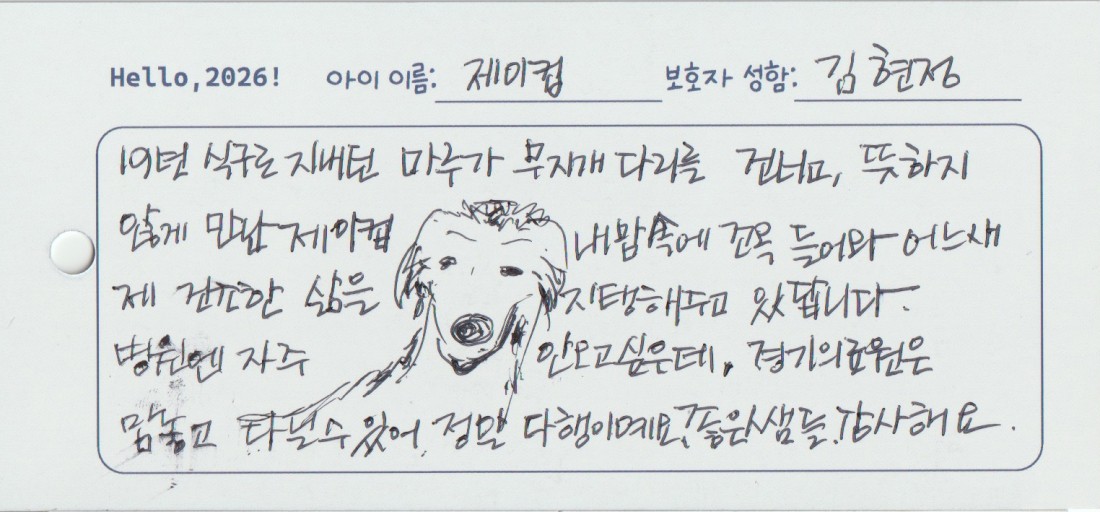 Hello,2026! 아이 이름: 제이컵 보호자 성함: 김현정
19년 식구로 지내던 마루가 무지개 다리를 건너고, 뜻하지
않게 만난 제이컵 내 맘속에 쏙 들어와 어느새
제 건조한 삶을 지탱해주고 있답니다.
병원엔 자주 안오고싶은데, 경기의료원은
맘놓고 다닐수 있어 정말 다행이예요, 좋은 샘들 감사해요.